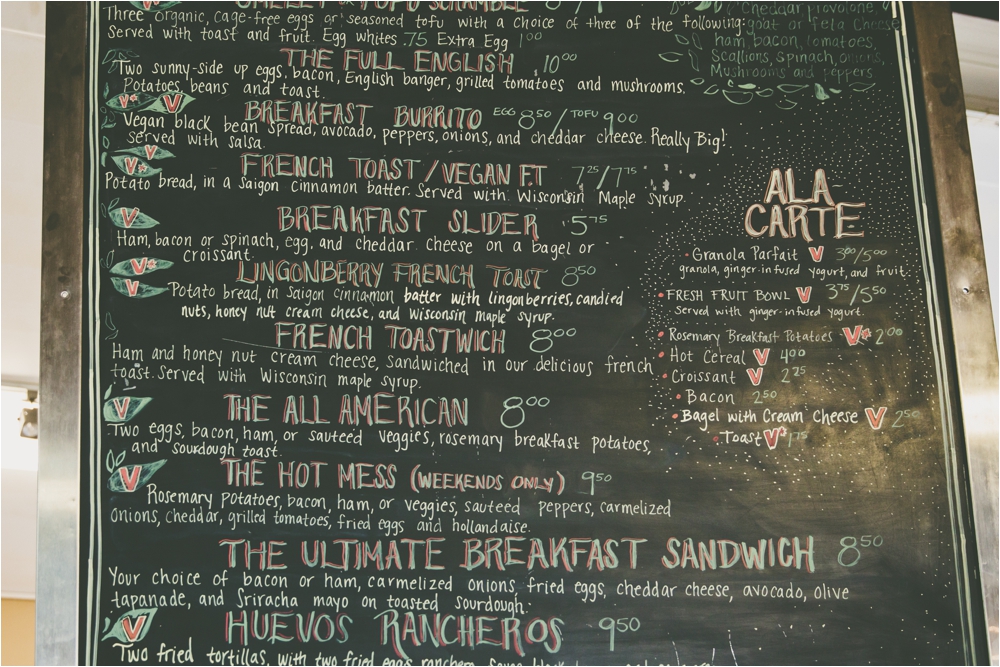 OMELET / TOFU SCRAMBLE
Three organic, cage-free eggs or seasoned tofu with a choice of three of the following:
Served with toast and fruit. Egg whites .75 Extra Egg 1.00
Cheddar provolone
goat or feta cheese
ham, bacon, tomatoes,
Scallions, spinach, onions,
Mushrooms and peppers
THE FULL ENGLISH 10.00
Two sunny-side up eggs, bacon, English banger, grilled tomatoes and mushrooms.
Potatoes, beans and toast.
V* V BREAKFAST BURRITO EGG 8.50/TOFU 9.00
Vegan black bean spread, avocado, peppers, onions, and cheddar cheese. Really Big!
served with salsa.
V V* FRENCH TOAST/VEGAN F.T. 7.25/7.75
Potato bread, in a Saigon cinnamon batter. Served with Wisconsin Maple syrup.
V BREAKFAST SLIDER 5.75
Ham, bacon or spinach, egg, and cheddar cheese on a bagel or
croissant.
V* V LINGONBERRY FRENCH TOAST 8.50
Potato bread, in Saigon cinnamon batter with lingonberries, candied
nuts, honey nut cream cheese, and Wisconsin maple syrup.
FRENCH TOASTWICH 8.00
Ham and honey nut cream cheese, Sandwiched in our delicious french
toast. Served with Wisconsin maple syrup.
V THE ALL AMERICAN 8.00
Two eggs, bacon, ham, or sauteed veggies, rosemary breakfast potatoes,
and sourdough toast.
V THE HOT MESS (WEEKENDS ONLY) 9.50
Rosemary potatoes, bacon, ham, or veggies, sauteed peppers, carmelized
Onions, cheddar, grilled tomatoes, fried eggs and hollandaise.
THE ULTIMATE BREAKFAST SANDWICH 8.50
Your choice of bacon or ham, carmelized onions, fried eggs, cheddar cheese, avocado, olive
tapanade, and Sriracha mayo on toasted sourdough.
V HUEVOS RANCHEROS 9.50
Two fried tortillas, with two fried eggs, ranchero sauce, black
ALA
CARTE
Granola Parfait V 3.00/5.00
granola, ginger-infused yogurt, and fruit.
FRESH FRUIT BOWL V 3.75/5.50
Served with ginger-infused yogurt.
Rosemary Breakfast Potatoes V* 2.00
Hot Cereal V 4.00
Croissant V 2.25
Bacon 2.50
Bagel with Cream Cheese V 2.50
Toast V* 1.75